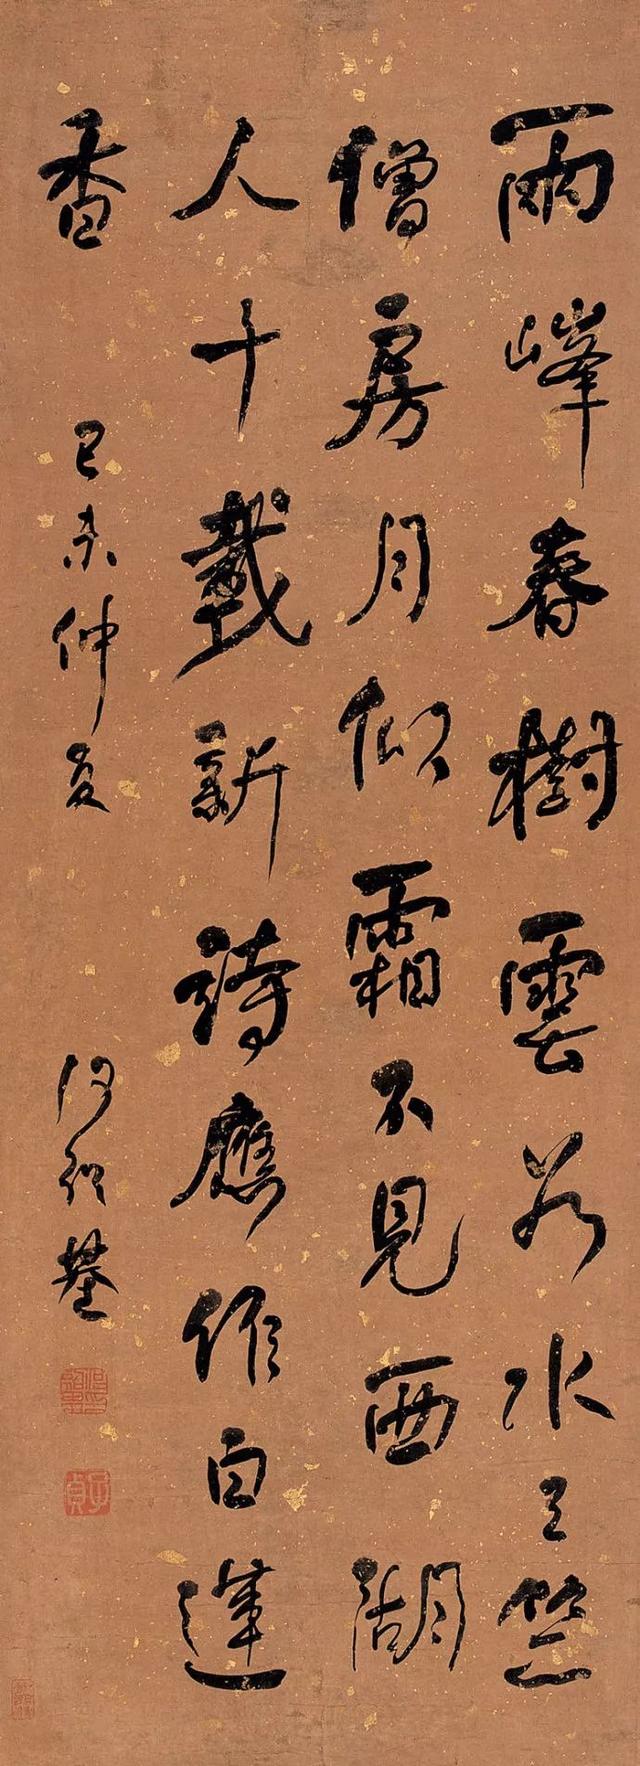 兩峰春樹雲若水三竺
僧房月似霜不見西湖
人十載新詩應作白蓮
香
己未仲夏
何紹基
何紹基印
子貞